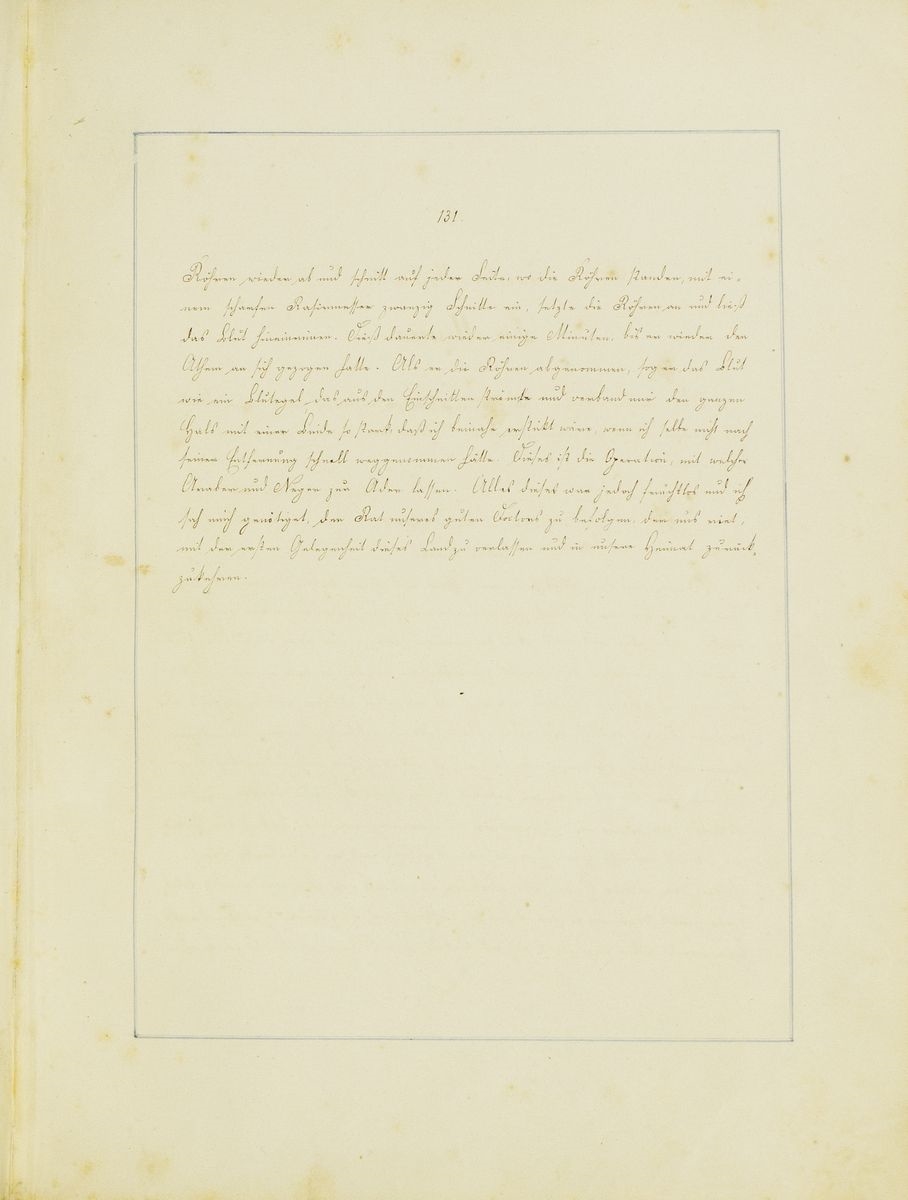 131.
Röhren wieder ab und schnitt auf jeder Seite, wo die Röhren standen, mit ei-
nem scharfen Rasirmesser zwanzig Schnitte ein, setzte die Röhren an und ließ
das Blut hineinrinnen. Dieß dauerte wieder einige Minuten, bis er wieder den
Athem an sich gezogen hatte. Als er die Röhren abgenommen, sog er das Blut
wie ein Blutegel, das aus den Einschnitten strömte und verband mir den ganzen
Hals mit einer Binde so stark, daß ich beinahe erstickt wäre, wenn ich selbe nicht nach
seiner Entfernung schnell weggenommen hätte. Dieses ist die Operation, mit welcher
Araber und Neger zur Ader lassen. Alles dieses war jedoch fruchtlos und ich
sah mich genötiget, den Rat unseres guten Doctors zu befolgen, der uns riet,
mit der ersten Gelegenheit dieses Land zu verlassen und in unsere Heimat zurück-
zukehren.